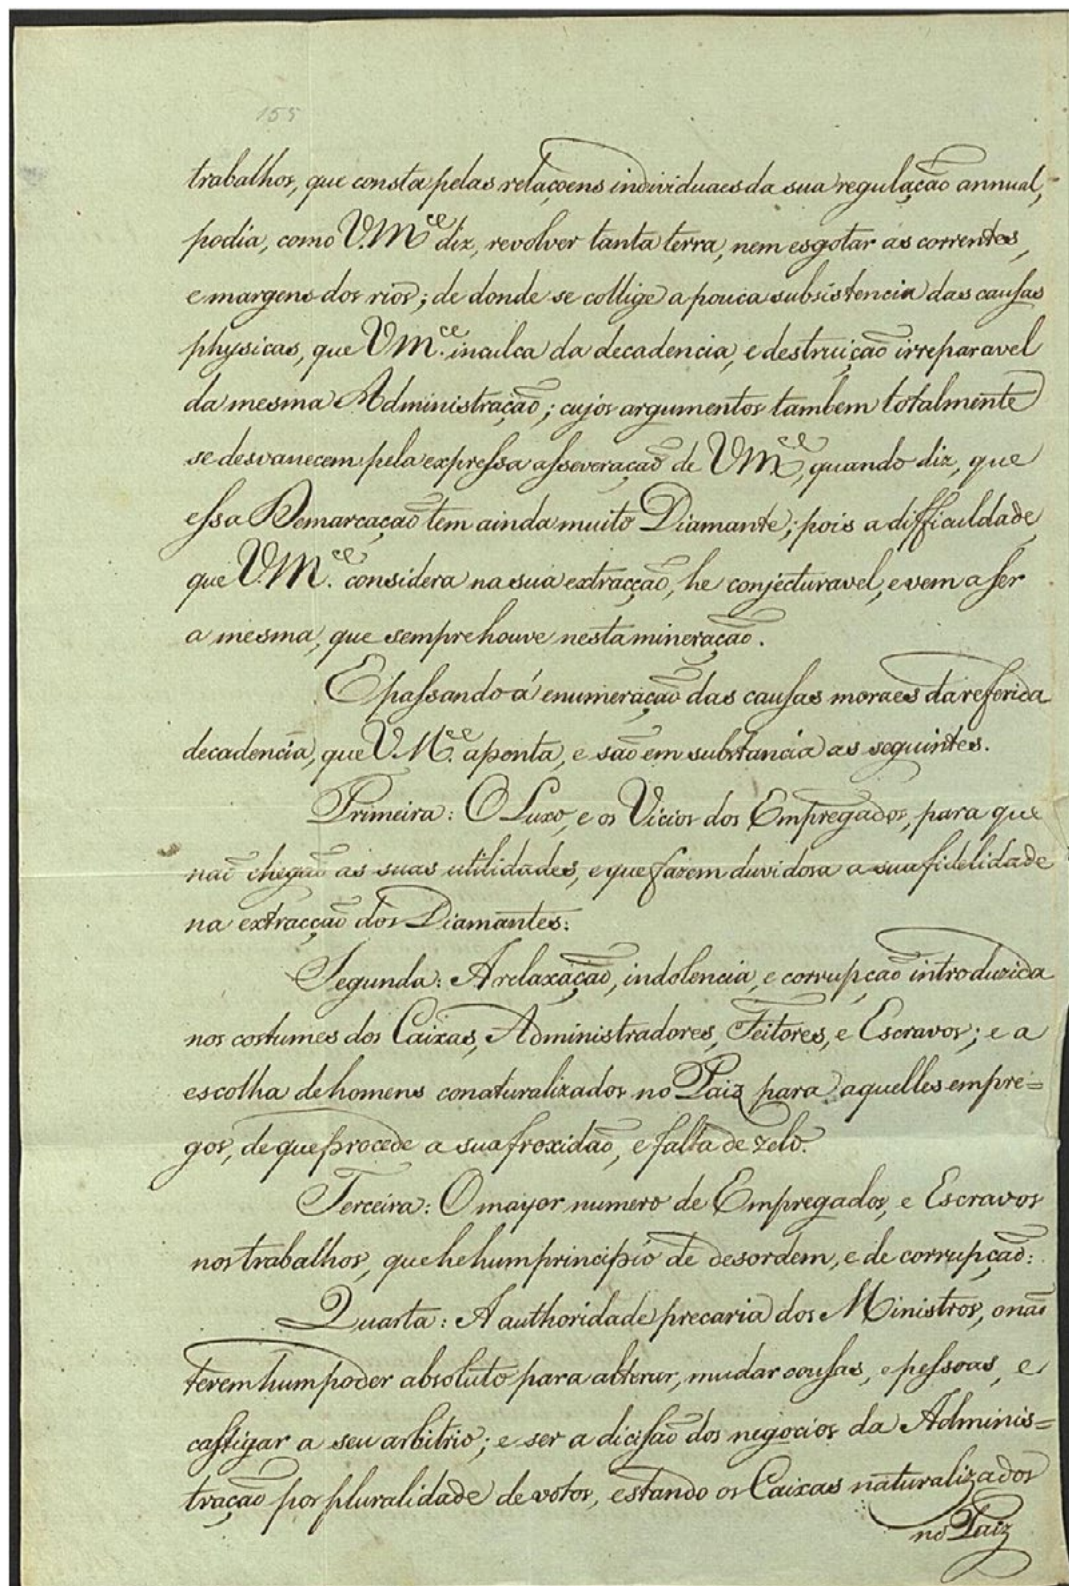 155
trabalhos, que consta pelas relaçoens individuaes da sua regulação annual,
podia, como V.M.ce diz, revolver tanta terra, nem esgotar as correntes,
e margens dos rios; de donde se collige a pouca subsistencia das causas
physicas, que V.M.ce inculca da decadencia, e destruição irreparavel
da mesma Administração; cujos argumentos tambem totalmente
se desvanecem pela expressa asseveração de V.M.ce, quando diz, que
essa Demarcação tem ainda muito Diamante; pois a difficuldade,
que V.M.ce considera na sua extracção, he conjecturavel, e vem a ser
a mesma, que sempre houve nesta mineração.
E passando á enumeração das causas moraes da referida
decadencia, que V.M.ce aponta, e são em substancia as seguintes.
Primeira: O Luxo, e os Vicios dos Empregados, para que
naõ chegaõ as suas utilidades, e que fazem duvidosa a sua fidelidade
na extracção dos Diamantes:
Segunda: A relaxação, indolencia, e corrupção introduzida
nos costumes dos Caixas, Administradores, Feitores, e Escravos; e a
escolha de homens conaturalizados no Paiz para aquelles empre=
gos, de que procede a sua froxidaõ, e falta de zelo.
Terceira: O mayor numero de Empregados, e Escravos
nos trabalhos, que he hum principio de desordem, e de corrupção:
Quarta: A authoridade precaria dos Ministros, o naõ
terem hum poder absoluto para alterar, mudar cousas, e pessoas, e
castigar a seu arbitrio; e ser a dicisaõ dos negocios da Adminis=
tração por pluralidade de votos, estando os Caixas naturalizados
no Paiz